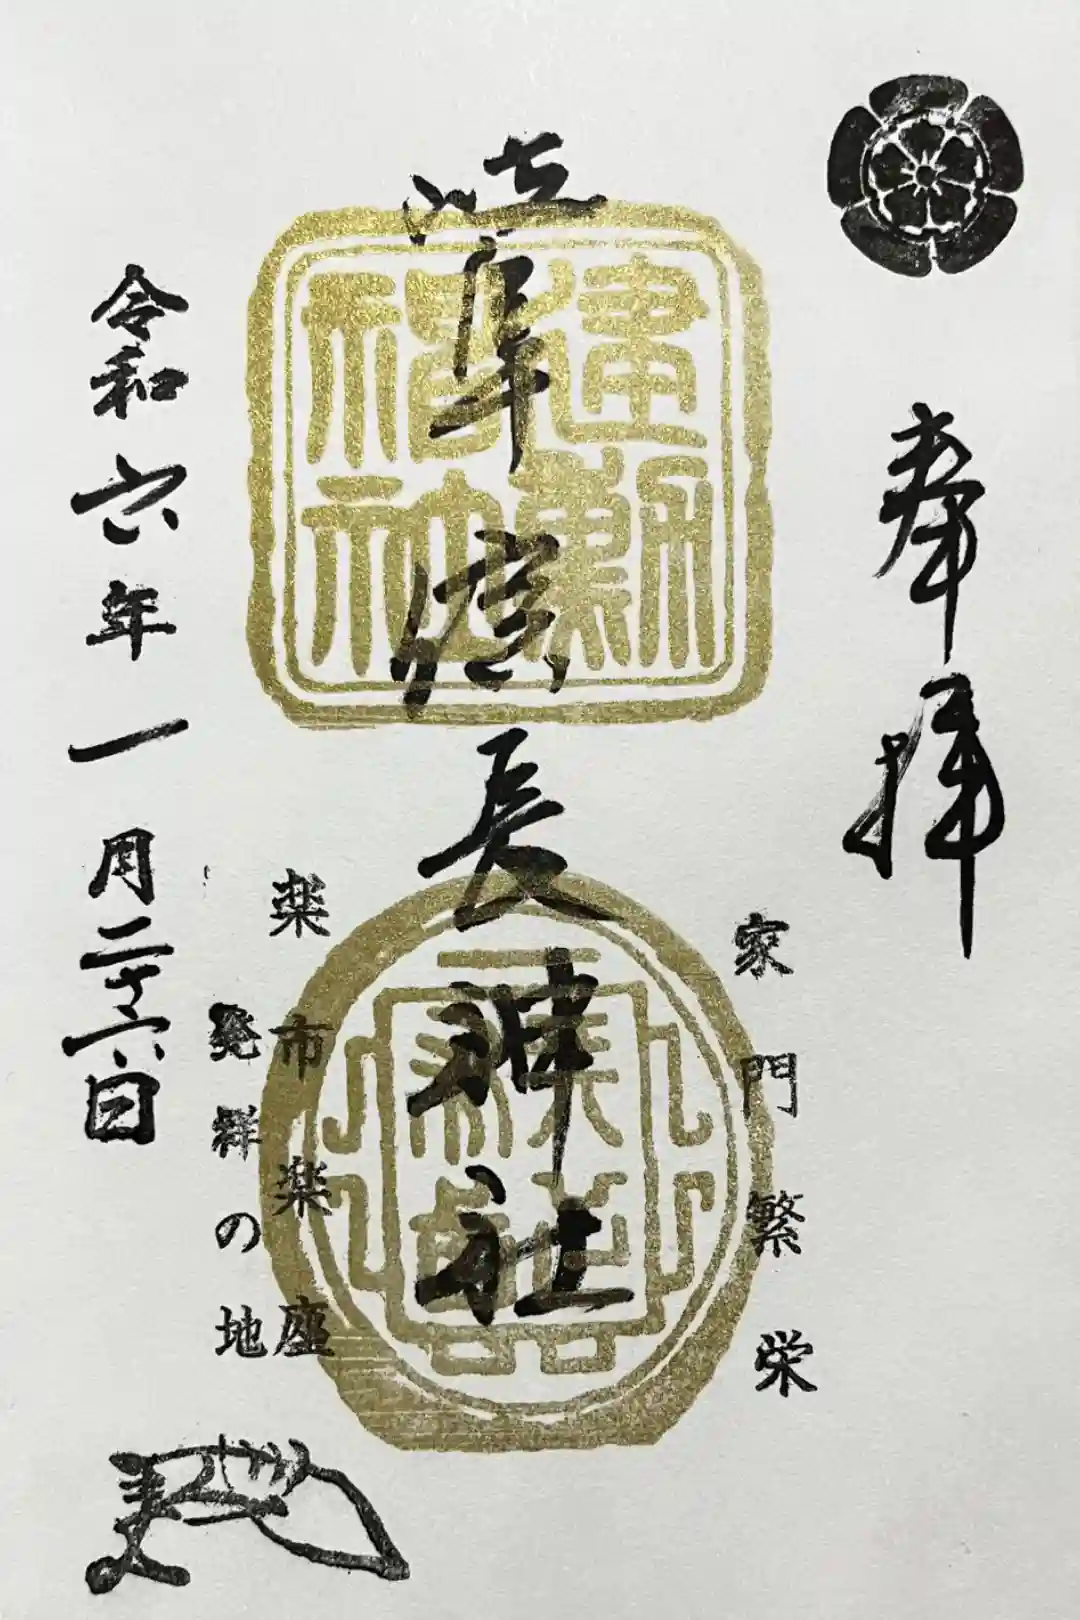 奉拝
家門繁栄
建勲
神社
岐阜信長神社
楽市楽座
発祥の地
令和六年一月二十六日